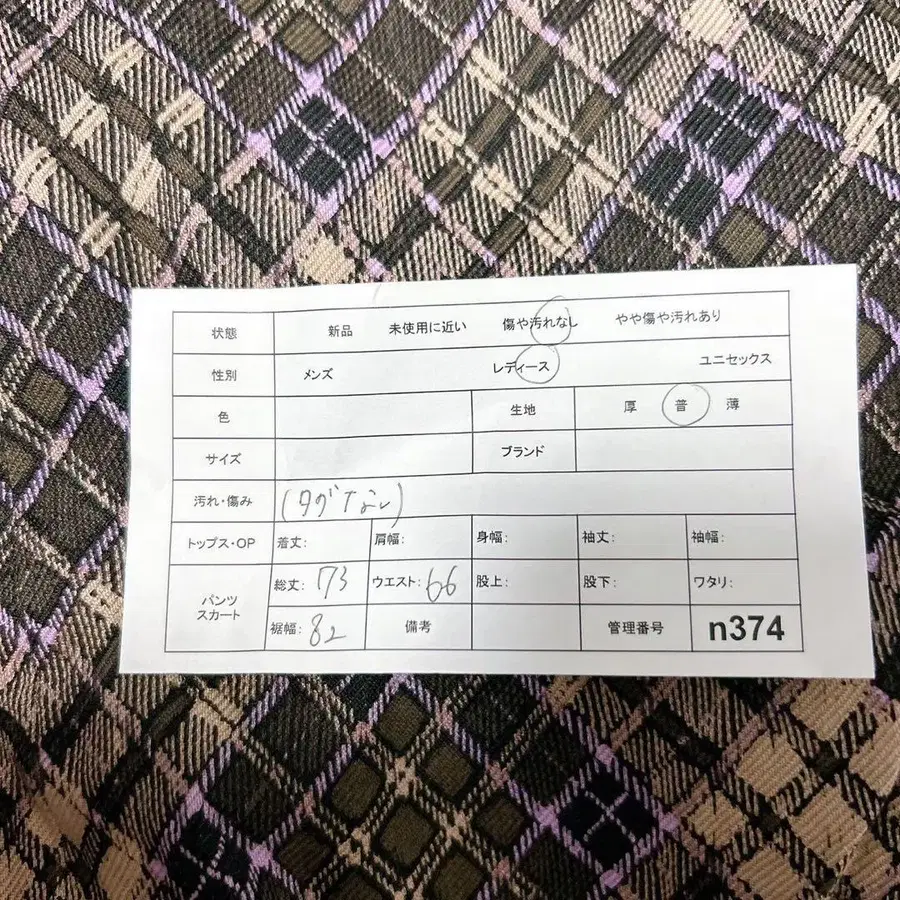 状態 新品 未使用に近い 傷や汚れなし やや傷や汚れあり
性別 メンズ レディース ユニセックス
色 生地 厚 普 薄
サイズ ブランド
汚れ・傷み (タグなし)
トップス・OP 着丈: 肩幅: 身幅: 袖丈: 袖幅:
パンツ スカート 総丈: 73 ウエスト: 66 股上: 股下: ワタリ:
裾幅: 82 備考 管理番号 n374